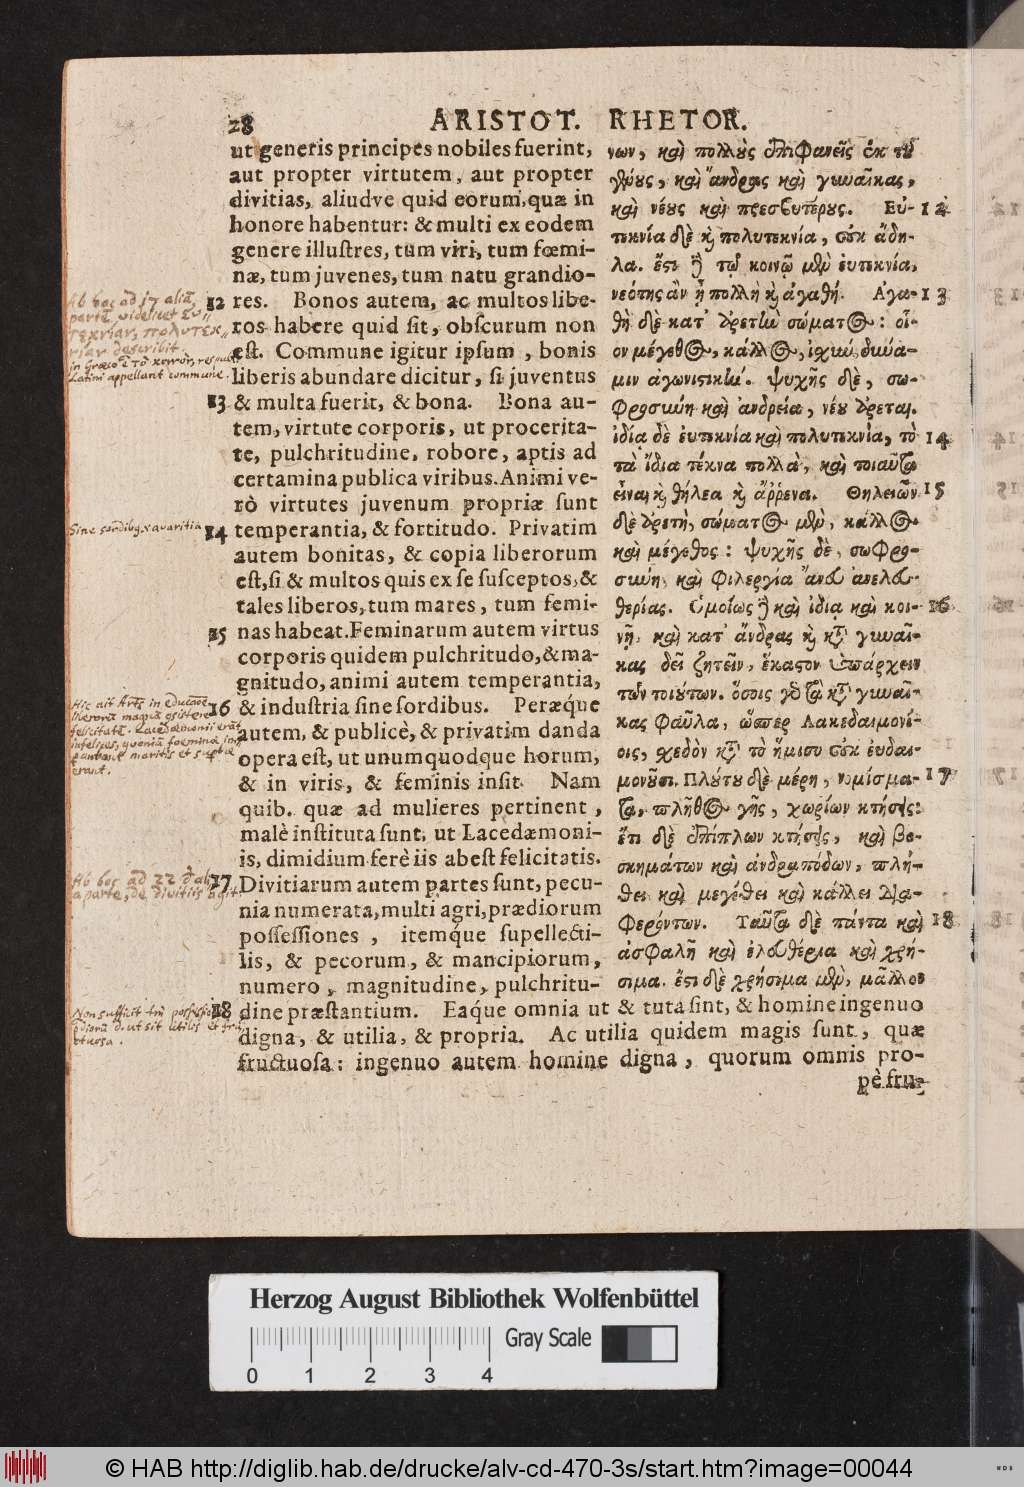 28 ARISTOT. RHETOR.
ut generis principes nobiles fuerint,
aut propter virtutem, aut propter
divitias, aliudve quid eorum, quæ in
honore habentur: & multi ex eodem
genere illustres, tum viri, tum fœmi-
næ, tum juvenes, tum natu grandio-
12 res. Bonos autem, ac multos libe-
ros habere quid sit, obscurum non
est. Commune igitur ipsum, bonis
liberis abundare dicitur, si juventus
13 & multa fuerit, & bona. Bona au-
tem, virtute corporis, ut procerita-
te, pulchritudine, robore, aptis ad
certamina publica viribus. Animi ve-
rò virtutes juvenum propriæ sunt
14 temperantia, & fortitudo. Privatim
autem bonitas, & copia liberorum
est, si & multos quis ex se susceptos, &
tales liberos, tum mares, tum femi-
15 nas habeat. Feminarum autem virtus
corporis quidem pulchritudo, & ma-
gnitudo, animi autem temperantia,
16 & industria sine sordibus. Peræque
autem, & publicè, & privatim danda
opera est, ut unumquodque horum,
& in viris, & feminis insit. Nam
quib. quæ ad mulieres pertinent,
malè instituta sunt, ut Lacedæmoni-
is, dimidium ferè iis abest felicitatis.
17 Divitiarum autem partes sunt, pecu-
nia numerata, multi agri, prædiorum
possessiones, itemque supellecti-
lis, & pecorum, & mancipiorum,
numero, magnitudine, pulchritu-
18 dine præstantium. Eaque omnia ut & tuta sint, & homine ingenuo
digna, & utilia, & propria. Ac utilia quidem magis sunt, quæ
fructuosa: ingenuo autem homine digna, quorum omnis pro-
pè fru-
νων, καὶ πολλοὺς ἐπιφανεῖς ἐκ τοῦ
γένους, καὶ ἄνδρας καὶ γυναῖκας,
καὶ νέους καὶ πρεσβυτέρους. Εὐ- 12
τεκνία δὲ καὶ πολυτεκνία, οὐκ ἄδη-
λα. ἔστι δὲ τῷ κοινῷ μὲν εὐτεκνία,
νεότης ἂν ᾖ πολλὴ καὶ ἀγαθή. Ἀγα- 13
θὴ δὲ κατ' ἀρετὴν σώματος: οἷ-
ον μέγεθος, κάλλος, ἰσχὺν, δύνα-
μιν ἀγωνιστικήν. ψυχῆς δὲ, σω-
φροσύνη καὶ ἀνδρεία, νέου ἀρεταί.
ἰδίᾳ δὲ εὐτεκνία καὶ πολυτεκνία, τὸ 14
τὰ ἴδια τέκνα πολλὰ, καὶ τοιαῦτα
εἶναι καὶ θήλεα καὶ ἄῤῥενα. Θηλειῶν 15
δὲ ἀρετὴ, σώματος μὲν, κάλλος
καὶ μέγεθος: ψυχῆς δὲ, σωφρο-
σύνη, καὶ φιλεργία ἄνευ ἀνελευ-
θερίας. Ὁμοίως δὲ καὶ ἰδίᾳ καὶ κοι- 16
νῇ, καὶ κατ' ἄνδρας καὶ κατὰ γυναῖ-
κας δεῖ ζητεῖν, ἕκαστον ὑπάρχειν
τῶν τοιούτων. ὅσοις γὰρ τὰ κατὰ γυναῖ-
κας φαῦλα, ὥσπερ Λακεδαιμονί-
οις, σχεδὸν κατὰ τὸ ἥμισυ οὐκ εὐδαι-
μονοῦσι. Πλούτου δὲ μέρη, νομίσμα- 17
τα, πλῆθος γῆς, χωρίων κτήσεις:
ἔτι δὲ ἐπίπλων κτήσεις, καὶ βο-
σκημάτων καὶ ἀνδραπόδων, πλή-
θει καὶ μεγέθει καὶ κάλλει δια-
φερόντων. Ταῦτα δὲ πάντα καὶ 18
ἀσφαλῆ καὶ ἐλευθέρια καὶ χρή-
σιμα. ἔστι δὲ χρήσιμα μὲν, μᾶλλον
Ab hoc ad 17 aliã
partẽ, videlicet εὐ
τεκνίαν, πολυτεκ
νίαν describit.
Latini appellant commune.
Sine sordib9 avaritia
felicitatẽ. Lacedæmonii erãt
infelices, quoniã fœminæ im
erant.
Ab hoc ad 22 de ali
a parte, de divitiis agit
Non sufficit
ut sit utilis et fru
ctuosa.
Herzog August Bibliothek Wolfenbüttel
Gray Scale
0 1 2 3 4
© HAB http://diglib.hab.de/drucke/alv-cd-470-3s/start.htm?image=00044